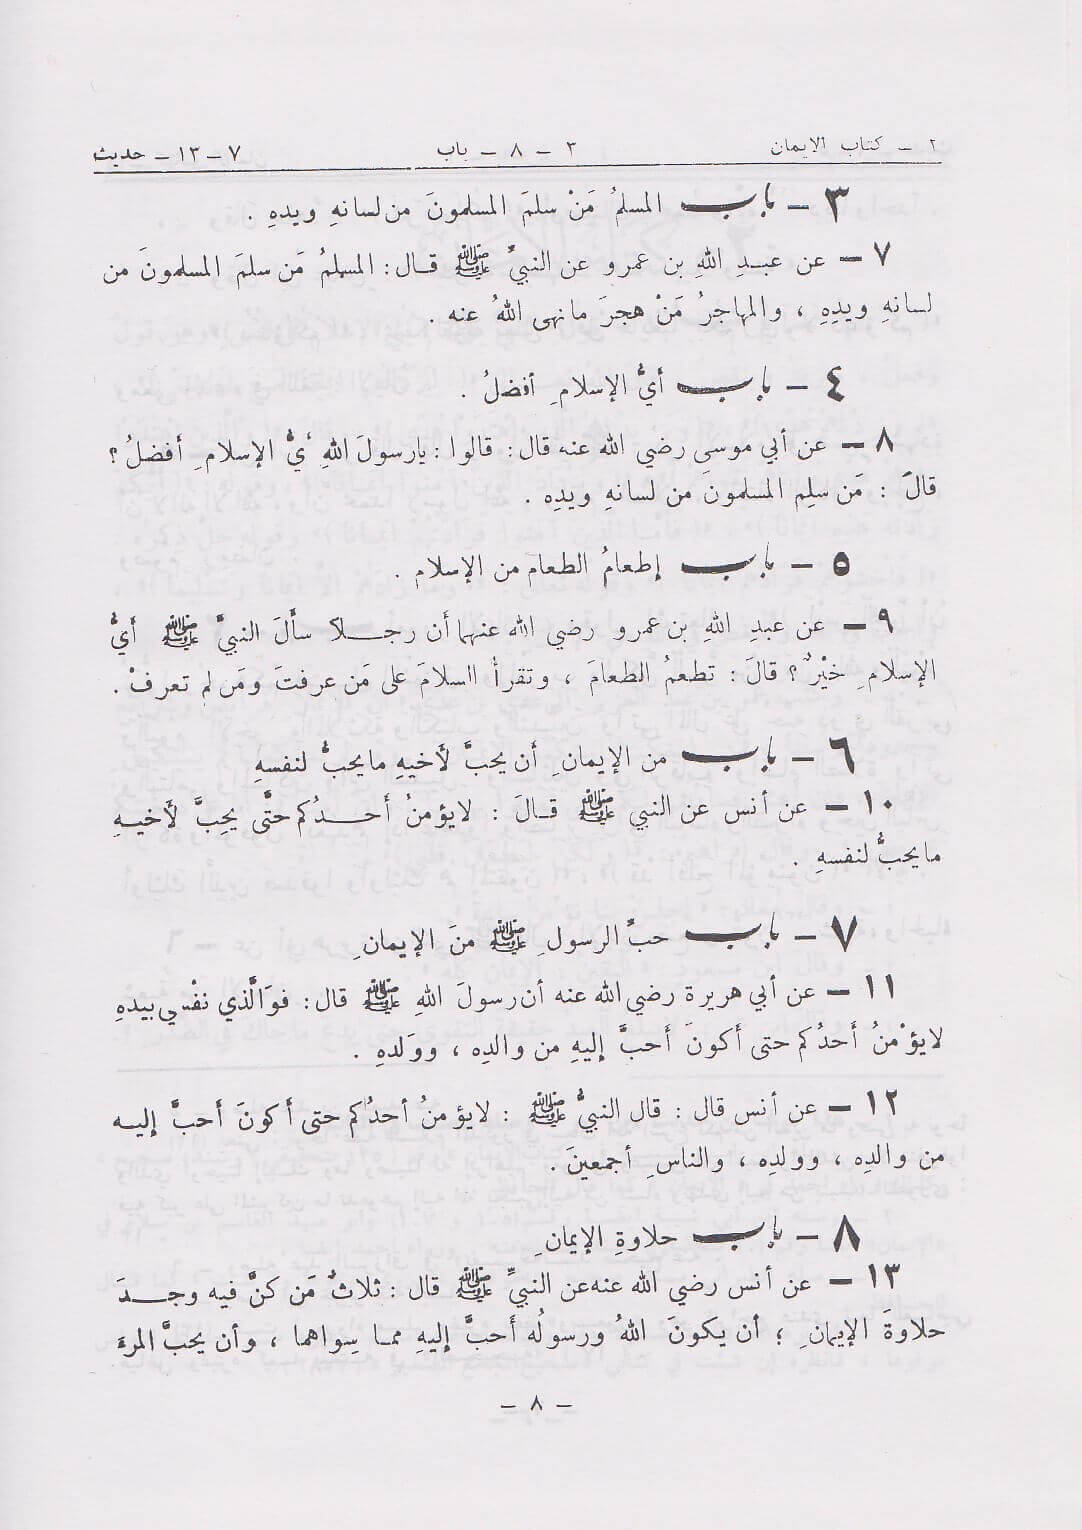 ٢ - كتاب الإيمان ٣ - ٨ - باب ٧ - ١٣ - حديث
٣ - باب المسلمُ مَنْ سلمَ المسلمونَ من لسانهِ ويدهِ .
٧ - عن عبدِ اللهِ بن عمرو عن النبيِّ ﷺ قال: المسلمُ مَن سلمَ المسلمونَ من
لسانهِ ويدِهِ ، والمهاجرُ مَنْ هجرَ مانهى اللهُ عنه .
٤ - باب أيُّ الإسلامِ أفضلُ .
٨ - عن أبي موسى رضي الله عنه قال: قالوا: يارسولَ اللهِ أيُّ الإسلامِ أفضلُ؟
قالَ : مَن سلِم المسلمونَ من لسانهِ ويدِه .
٥ - باب إطعامُ الطعام من الإسلام .
٩ - عن عبدِ اللهِ بن عمرو رضي الله عنهما أن رجلاً سألَ النبيَّ ﷺ أيُّ
الإسلامِ خيْرٌ؟ قالَ: تطعمُ الطعامَ ، وتقرأُ السلامَ على مَن عرفتَ ومَن لم تعرفْ.
٦ - باب من الإيمانِ أن يحبَّ لأخيهِ مايحبُّ لنفسهِ
١٠ - عن أنس عن النبي ﷺ قالَ : لايؤمنُ أحدُكم حتَّى يحِبَّ لأخيهِ
مايحبُّ لنفسهِ .
٧ - باب حبُّ الرسولِ ﷺ منَ الإيمانِ
١١ - عن أبي هريرة رضي الله عنه أن رسولَ اللهِ ﷺ قال: فوَالَّذي نفْسي بيدهِ
لايؤْمنُ أَحدُكم حتى أكونَ أحبَّ إليهِ من والدِه ، وولدهِ .
١٢ - عن أنس قال: قال النبيُّ ﷺ : لايؤمنُ أحدُكم حتى أكونَ أحبَّ إليه
من والدِه ، وولدِه ، والناسِ أجمعينَ .
٨ - باب حلاوةِ الإيمانِ
١٣ - عن أنس رضي الله عنه عن النبيِّ ﷺ قال: ثلاثٌ مَن كنَّ فيه وجدَ
حلاوةَ الإيمانِ ؛ أن يكونَ اللهُ ورسولُه أَحبَّ إليهِ مما سِواهما ، وأن يحبَّ المرءَ
- ٨ -